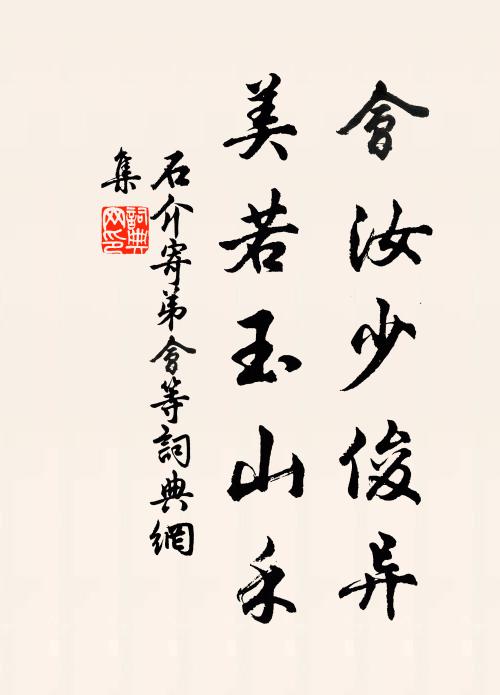 會汝少俊异
美若玉山禾
石介寄弟會等詞典網
集
詞典
网印